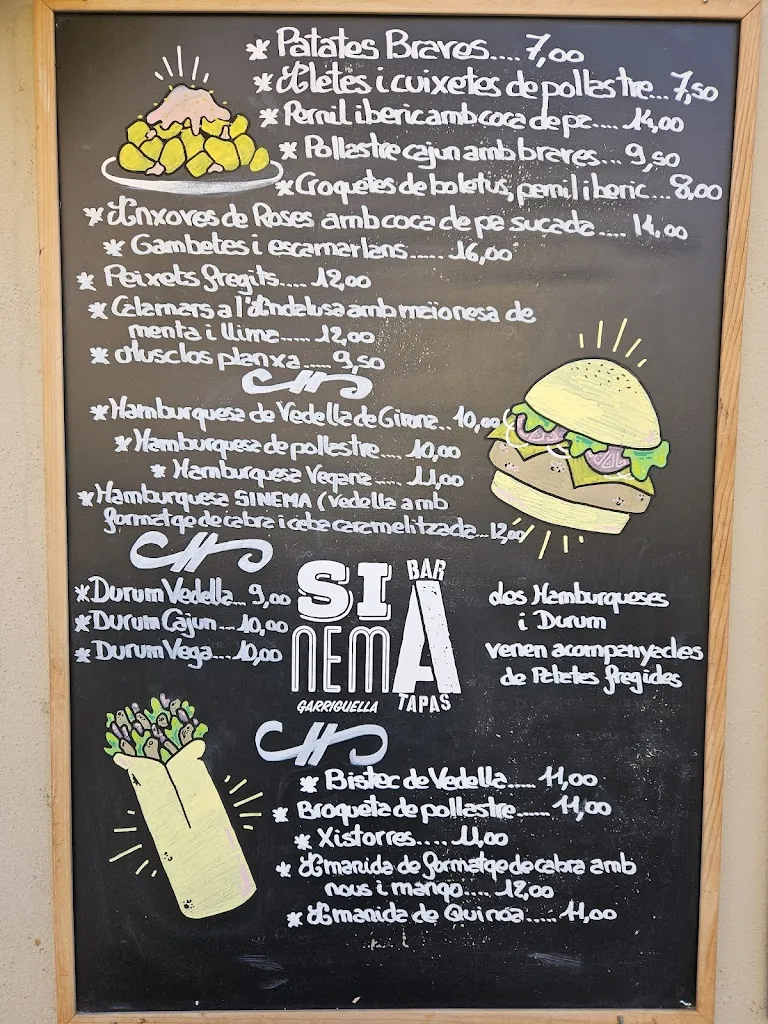 * Patates Braves.... 7,00
* Aletes i cuixetes de pollastre... 7,50
* Pernil iberic amb coca de pa..... 14,00
* Pollastre cajun amb braves... 9,50
* Croquetes de boletus, pernil iberic... 8,00
* Anxoves de Roses amb coca de pa sucada .... 14,00
* Gambetes i escamarlans..... 16,00
* Peixets fregits..... 12,00
* Calamars a l'Andalusa amb maionesa de
menta i llima..... 12,00
* Musclos planxa..... 9,50
* Hamburguesa de Vedella de Girona.. 10,00
* Hamburguesa de pollastre.... 10,00
* Hamburguesa Vegana ..... 11,00
* Hamburguesa SINEMA (Vedella amb
formatge de cabra i ceba caramelitzada... 12,00
* Durum Vedella... 9,00
* Durum Cajun .... 10,00
* Durum Vega.... 10,00
SI
NEMA
BAR
TAPAS
GARRIGUELLA
les Hamburgueses
i Durum
venen acompanyades
de Patates fregides
* Bistec de Vedella..... 11,00
* Broqueta de pollastre...... 11,00
* Xistorres..... 11,00
* Amanida de formatge de cabra amb
nous i mango.... 12,00
* Amanida de Quinoa..... 11,00